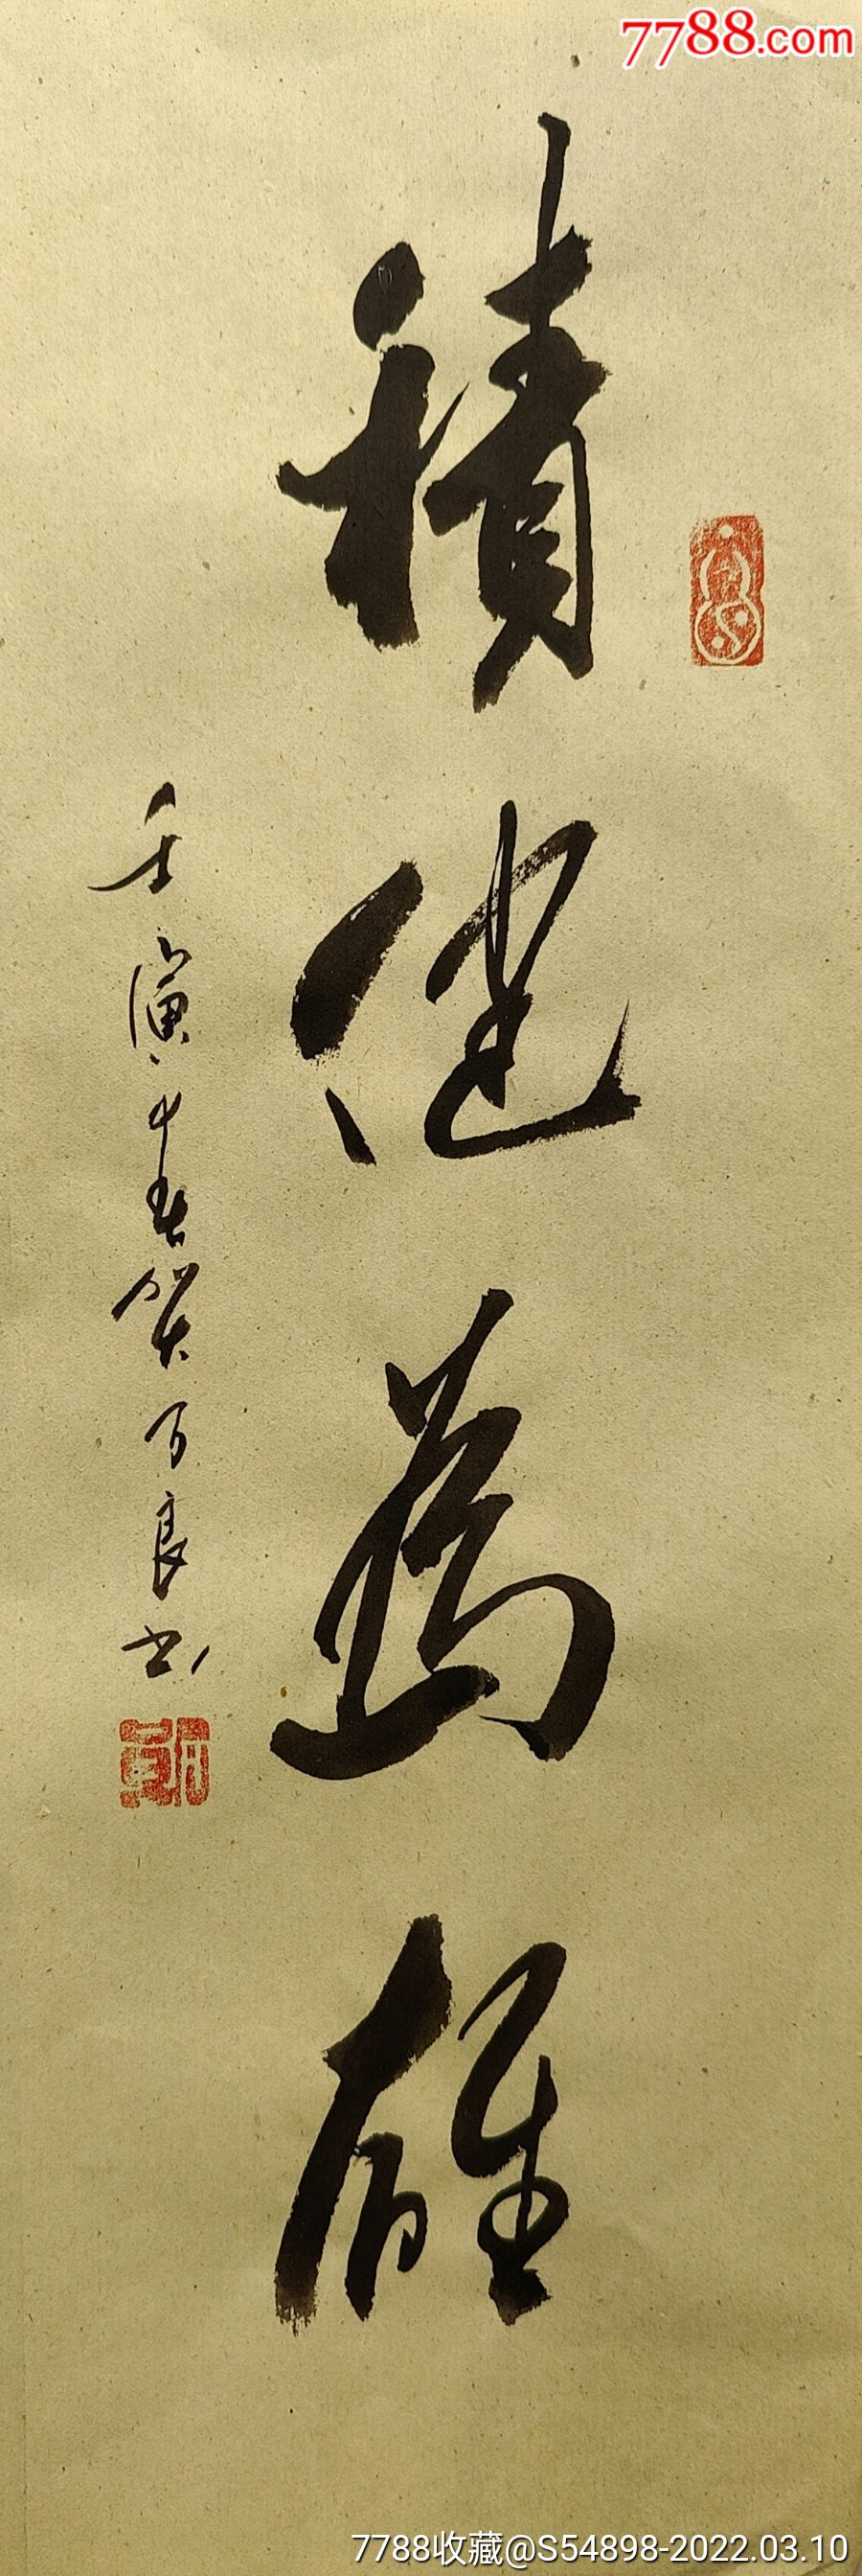 7788.com
積健為雄
壬寅春賀万良书
7788收藏@S54898-2022.03.10